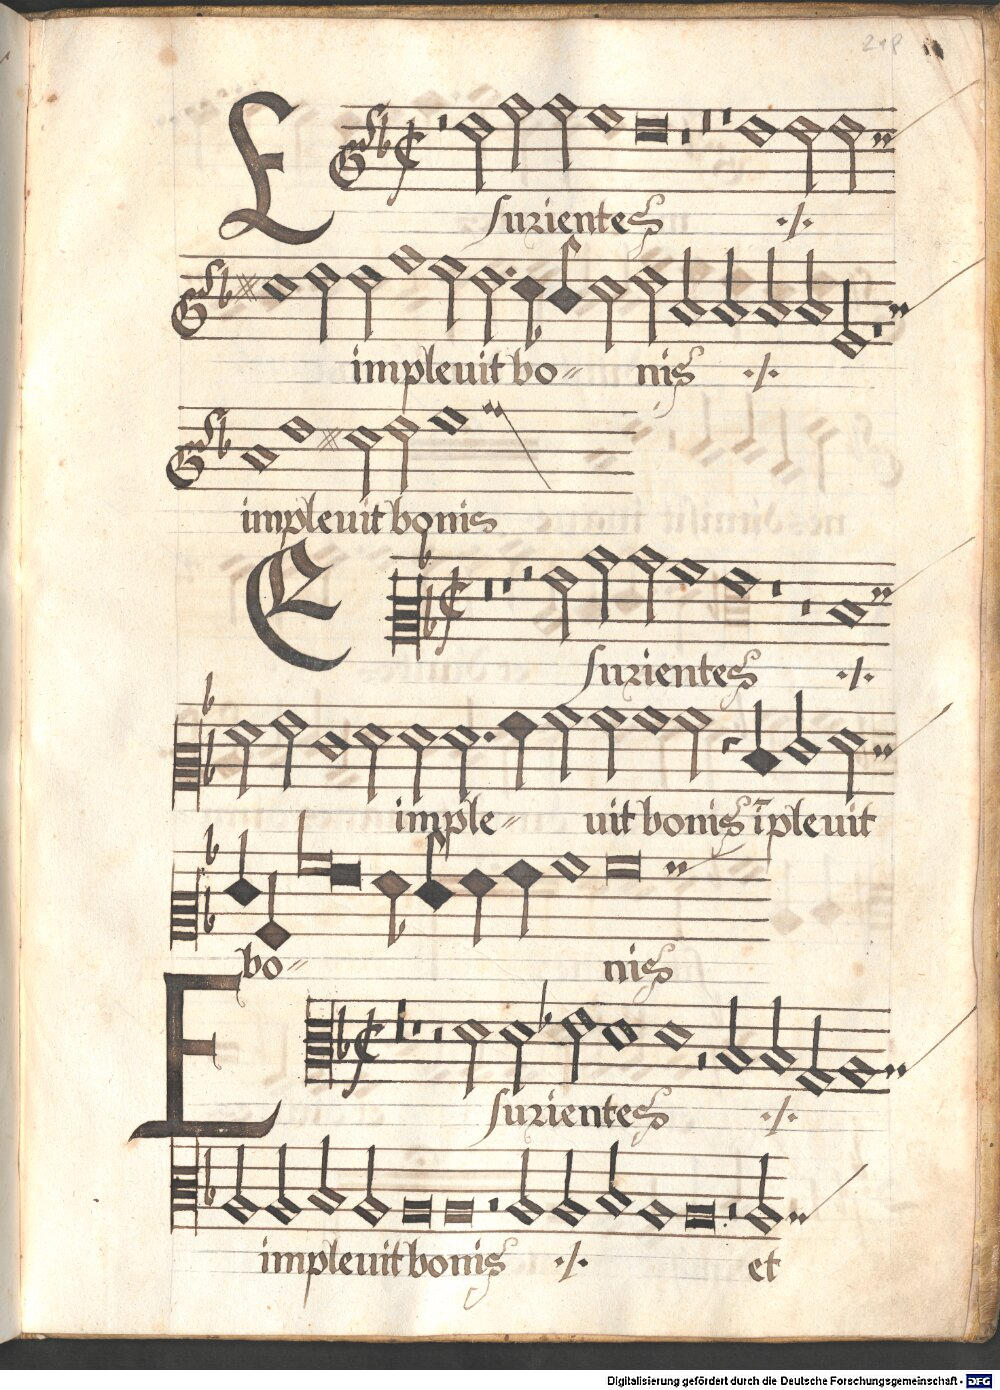 218
Esurientes ·/·
impleuit bo= nis ·/·
impleuit bonis
Esurientes ·/·
imple= uit bonis īpleuit
bo= nis
Esurientes ·/·
impleuit bonis ·/· et
Digitalisierung gefördert durch die Deutsche Forschungsgemeinschaft - DFG